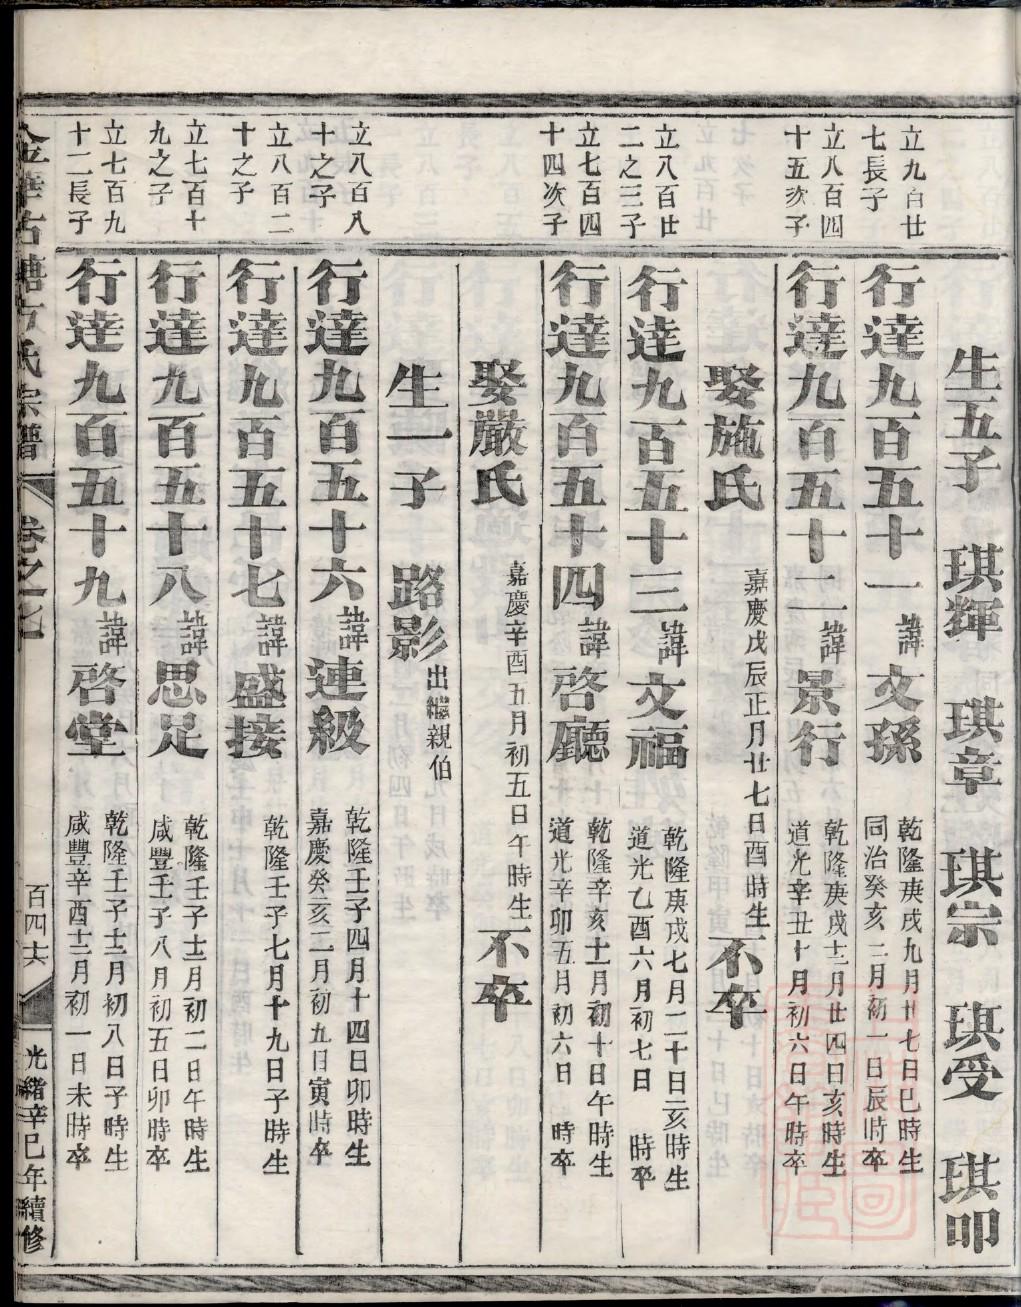 生五子 琪輝 琪章 琪宗 琪受 琪叩
立九百廿
七長子
行達九百五十一 諱文孫
乾隆庚戌九月廿七日巳時生
同治癸亥二月初一日辰時卒
立八百四
十五次子
行達九百五十二 諱景行
乾隆庚戌十二月廿四日亥時生
道光辛丑十月初六日午時卒
娶施氏 嘉慶戊辰正月廿七日酉時生 不卒
立八百廿
二之三子
行達九百五十三 諱文福
乾隆庚戌七月二十日亥時生
道光乙酉六月初七日 時卒
立七百四
十四次子
行達九百五十四 諱啓廳
乾隆辛亥十一月初十日午時生
道光辛卯五月初六日 時卒
娶嚴氏 嘉慶辛酉五月初五日午時生 不卒
生一子 路影 出繼親伯
立八百八
十之子
行達九百五十六 諱連級
乾隆壬子四月十四日卯時生
嘉慶癸亥二月初九日寅時卒
立八百二
十之子
行達九百五十七 諱盛接
乾隆壬子七月十九日子時生
立七百十
九之子
行達九百五十八 諱思足
乾隆壬子十二月初二日午時生
咸豐壬子八月初五日卯時卒
立七百九
十二長子
行達九百五十九 諱啓堂
乾隆壬子十二月初八日子時生
咸豐辛酉十二月初一日未時卒
氏宗譜 卷之七 百四六 光緒辛巳年續修